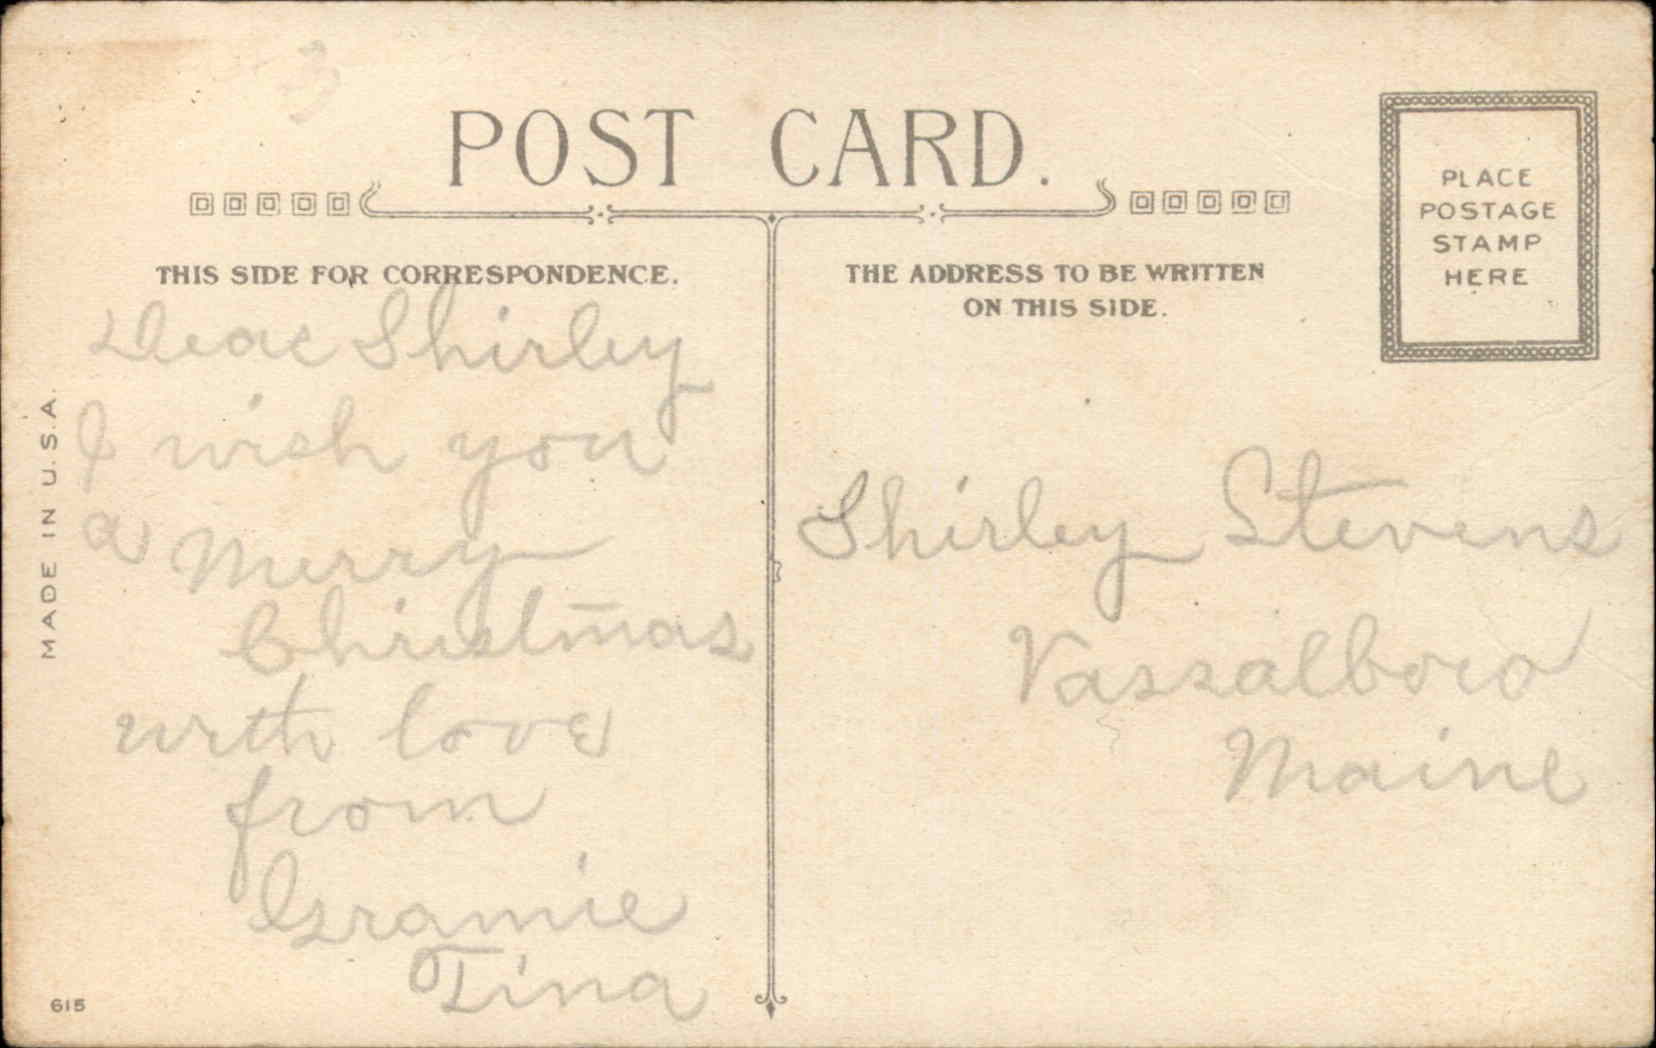 POST CARD.
THIS SIDE FOR CORRESPONDENCE.
Dear Shirley
I wish you
a Merry
Christmas
with love
from
Gramie
Tina
THE ADDRESS TO BE WRITTEN
ON THIS SIDE.
PLACE
POSTAGE
STAMP
HERE
Shirley Stevens
Vassalboro
Maine
MADE IN U.S.A.
615